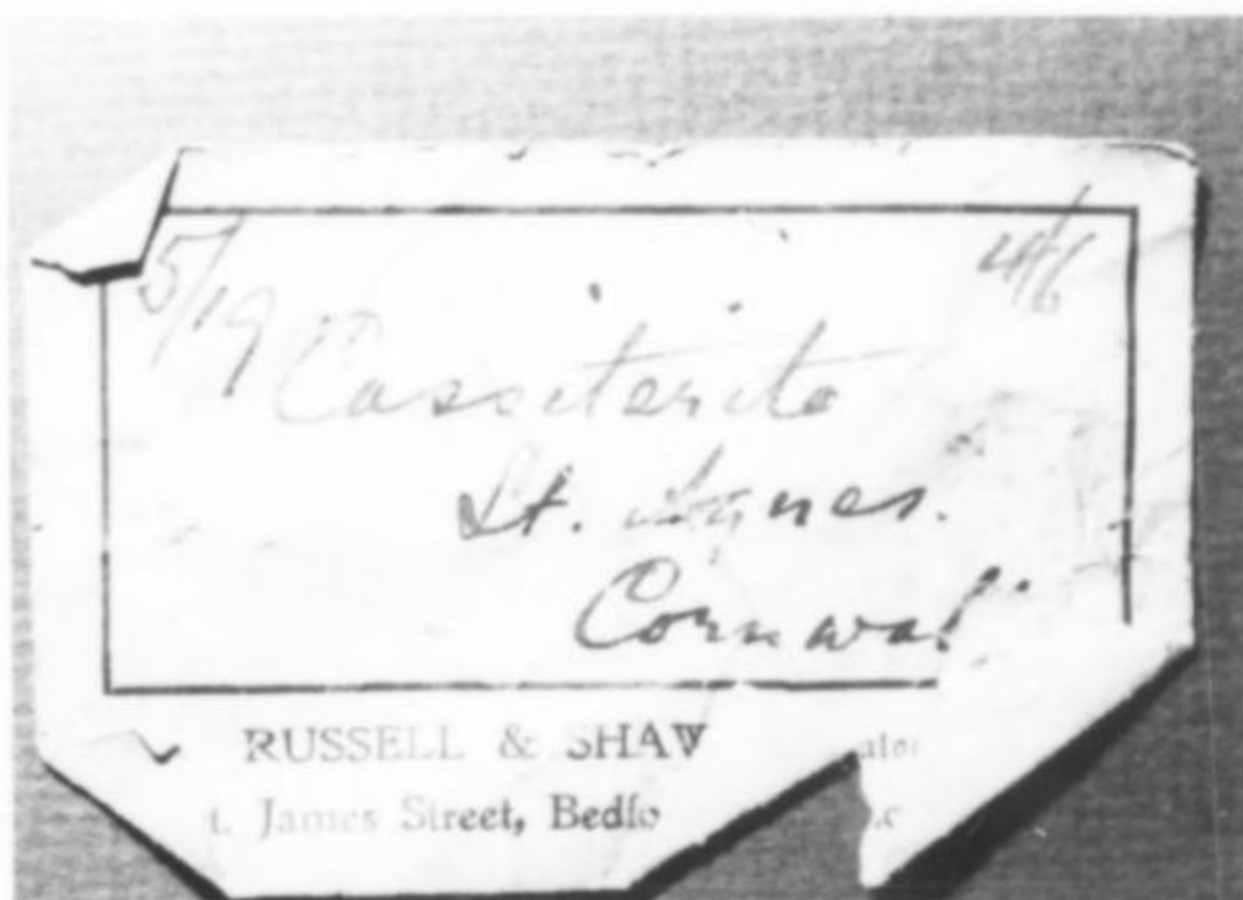 5/19 4/6
Cassiterite
St. Agnes.
Cornwal
RUSSELL & SHAW
t. James Street, Bedfo